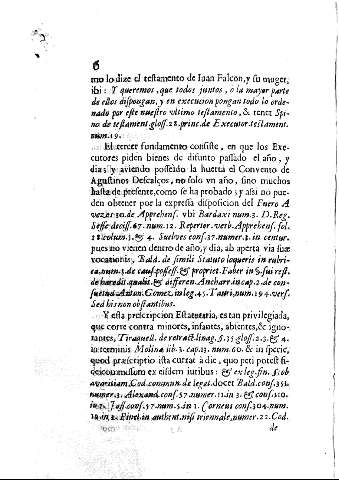 6
mo lo dize el testamento de Iuan Falcon, y su muger,
ibi: Y queremos, que todos juntos, o la mayor parte
de ellos dispongan, y en execucion pongan todo lo orde-
nado por este nuestro vltimo testamento, & tenet Spi-
no de testament. gloss. 28. princ. de Executor. testament.
num. 19.
El tercer fundamento consiste, en que los Exe-
cutores piden bienes de difunto passado el año, y
dia; y aviendo posseido la huerta el Convento de
Agustinos Descalços, no solo vn año, sino muchos
hasta de presente, como se ha probado; y assi no pue-
den obtener por la expressa disposicion del Fuero A
vezes 30. de Apprehens. vbi Bardaxi num. 3. D. Reg.
Sesse deciss. 67. num. 12. Reperter. verb. Apprehens. fol.
28. colum. 3. & 4. Suelves cons. 37. numer. 3. in centur.
pues no vienen dentro de año, y dia, ab aperta via suæ
vocationis, Bald. de simili Statuto loqueris in rubri-
ca, num. 3. de caus. possess. & propriet. Faber in §. fui rest.
de haredit. qualit. & differen. Anchar. in cap. 2. de con-
suetud. Anton. Gomez in leg. 45. Tauri, num. 194. vers.
Sed his non obstantibus.
Y esta prescripcion Estatutaria, es tan privilegiada,
que corre contra minores, infantes, absentes, & igno-
rantes, Tiraquell. de retract. linag. §. 35. gloss. 2. 3. & 4.
in terminis Molina lib. 3. cap. 13. num. 60. & in specie,
quod præscriptio ista currat à die, quo peti potest fi-
deicommissum ex eisdem iuribus: & ex leg. fin. §. sed
avaritiam, Cod. commun. de legat. docet Bald. cons. 351.
numer. 3. Alexand. cons. 57. numer. 11. in 3. & cons. 110.
in 7. Jass. cons. 57. num. 5. in 3. Corneus cons. 304. num.
12. in 2. Pinel in authent. nisi triennale, numer. 22. Cod.
de